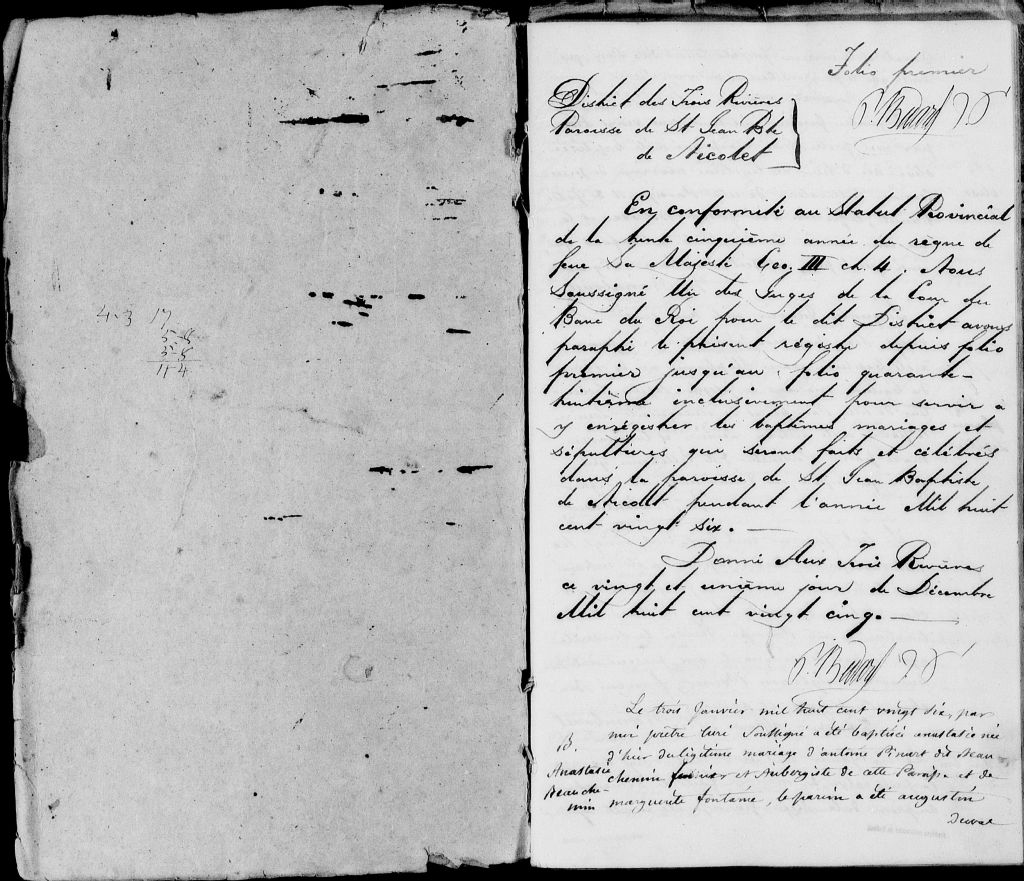 4-3 17
5-8
5-8
11-4
Folio premier
District des Trois Rivières
Paroisse de St Jean Bte
de Nicolet
En conformité au Statut Provincial
de la trente cinquième année du règne de
feue Sa Majesté Geo. III ch. 4. Nous
Soussigné Un des Juges de la Cour du
Banc du Roi pour le dit District avons
paraphé le présent régistre depuis folio
premier jusqu'au folio quarante-
huitième inclusivement pour servir à
y enrégistrer les baptêmes mariages et
sépultures qui seront faits et célébrés
dans la paroisse de St Jean Baptiste
de Nicolet pendant l'année Mil huit
cent vingt six.
Donné Aux Trois Rivières
ce vingt et unième jour de Décembre
Mil huit cent vingt cinq.
Le trois Janvier mil huit cent vingt six, par
moi prêtre Curé Soussigné a été baptisée anastasie née
B.
Anastasie
Beauche-
min
d'hier du légitime mariage d'antoine Pinart dit Beau
chemin et Aubergiste de cette Paroisse et de
marguerite fontaine, le parain a été augustin
Duval